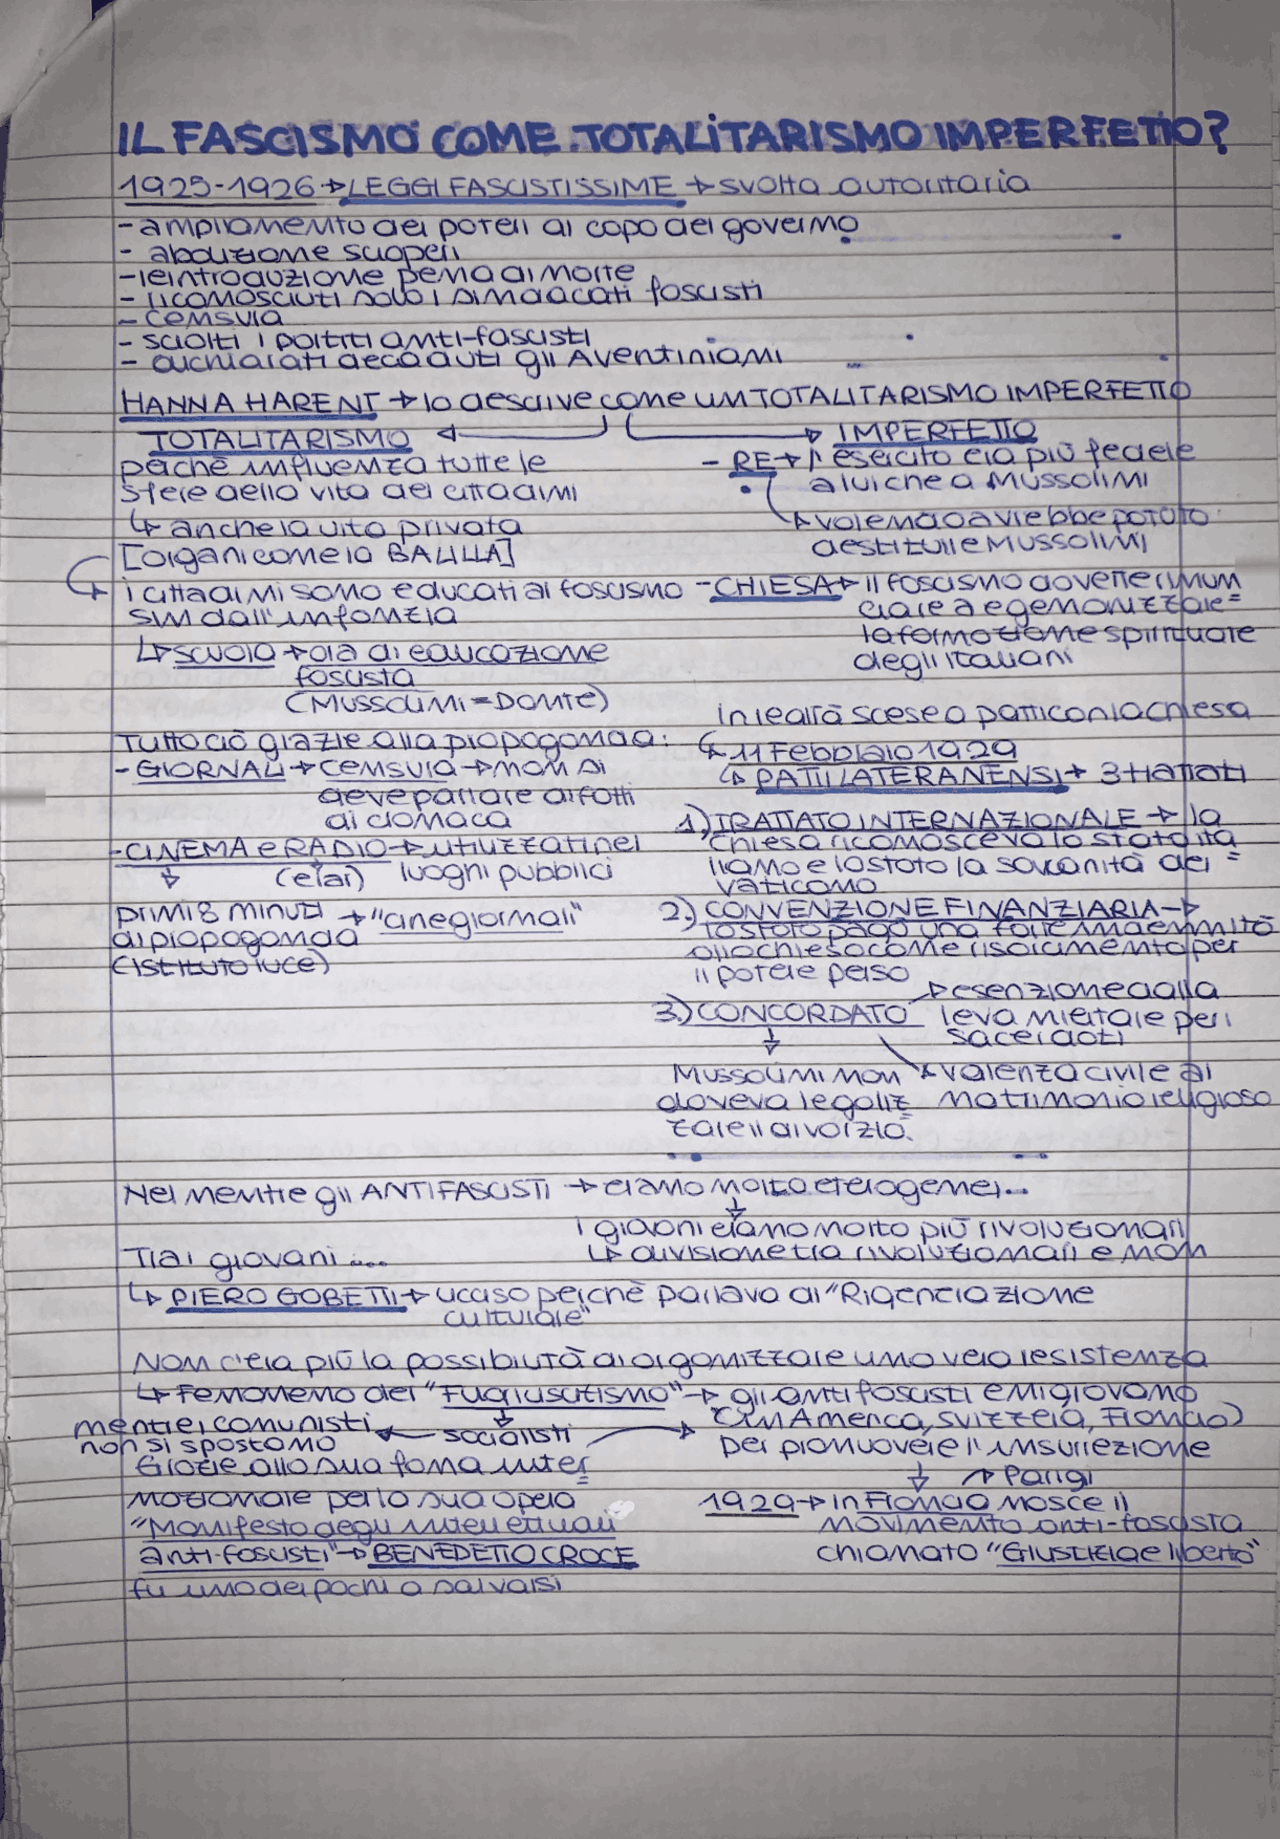 IL FASCISMO COME TOTALITARISMO IMPERFETTO?
1925-1926 → LEGGI FASCISTISSIME → svolta autoritaria
- ampliamento dei poteri al capo del governo
- abolizione scioperi
- reintroduzione pena di morte
- riconosciuti solo i sindacati fascisti
- censura
- sciolti i partiti anti-fascisti
- dichiarati decaduti gli Aventiniani
HANNA HARENT → lo descrive come un TOTALITARISMO IMPERFETTO
TOTALITARISMO
perchè influenza tutte le
sfere della vita dei cittadini
↳ anche la vita privata
[organi come la BALILLA]
i cittadini sono educati al fascismo
sin dall'infanzia
↳ scuola → ora di educazione
fascista
(Mussolini = Dante)
Tutto ciò grazie alla propaganda:
- GIORNALI → censura → non si
deve parlare di fatti
di cronaca
- CINEMA e RADIO → utilizzati nei
(eiar) luoghi pubblici
primi 8 minuti → "cinegiornali"
di propaganda
(istituto luce)
IMPERFETTO
- RE → l'esercito era più fedele
a lui che a Mussolini
↳ volendo avrebbe potuto
destituire Mussolini
- CHIESA → il fascismo dovette rinun
ciare a egemonizzare =
la formazione spirituale
degli italiani
in realtà scese a patti con la chiesa
↳ 11 Febbraio 1929
↳ PATTI LATERANENSI → 3 trattati
1) TRATTATO INTERNAZIONALE → la
chiesa riconosceva lo stato ita
liano e lo stato la sovranità del =
vaticano
2) CONVENZIONE FINANZIARIA →
lo stato pagò una forte indennità
alla chiesa come risarcimento per
il potere perso
3) CONCORDATO → esenzione dalla
leva militare per i
sacerdoti
Mussolini non → valenza civile al
doveva legaliz = matrimonio religioso
zare il divorzio.
Nel mentre gli ANTIFASCISTI → erano molto eterogenei...
i giovani erano molto più rivoluzionari
↳ divisione tra rivoluzionari e non
Tra i giovani...
↳ PIERO GOBETTI → ucciso perchè parlava di "Rigenerazione
culturale"
Non c'era più la possibilità di organizzare una vera resistenza
↳ Fenomeno del "Fuoriuscitismo" → gli antifascisti emigravano
(in America, Svizzera, Francia)
per promuovere l'insurrezione
socialisti
mentre i comunisti
non si spostano
Grazie alla sua fama inter =
nazionale per la sua opera
"Manifesto degli intellettuali
anti-fascisti" → BENEDETTO CROCE
fu uno dei pochi a salvarsi
→ Parigi
1929 → in Francia nasce il
movimento anti-fascista
chiamato "Giustizia e libertà"